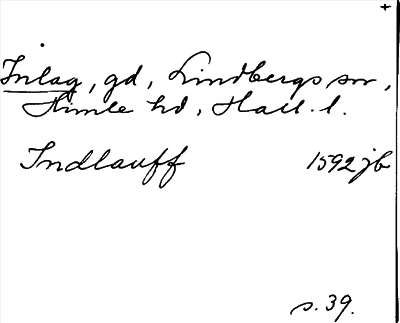 +
Inlag, gd, Lindbergs sn,
Himle hd, Hall. l.
Indlauff 1592 jb
s. 39.